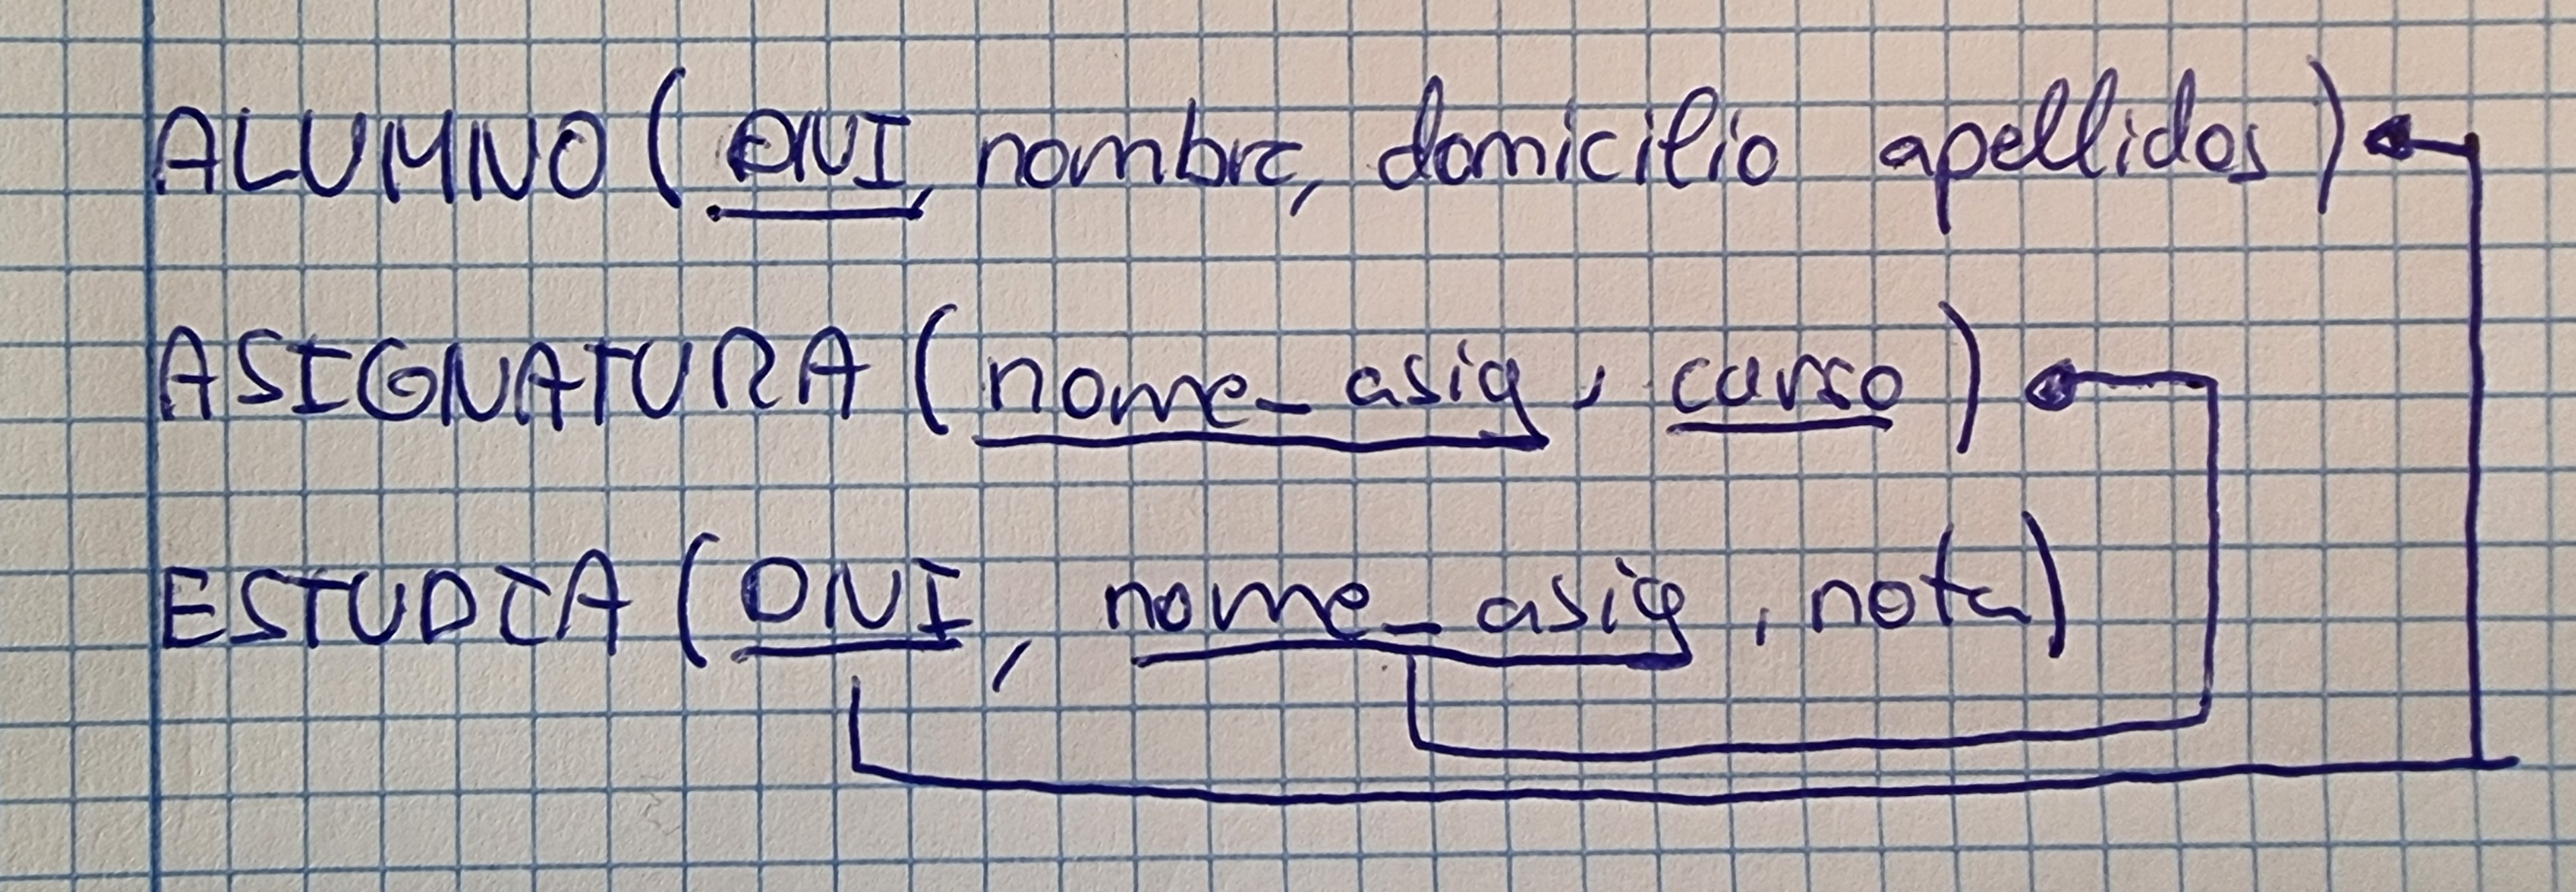 ALUMNO (DNI, nombre, domicilio apellidos)
ASIGNATURA (nome_asig, curso)
ESTUDIA (DNI, nome_asig, nota)